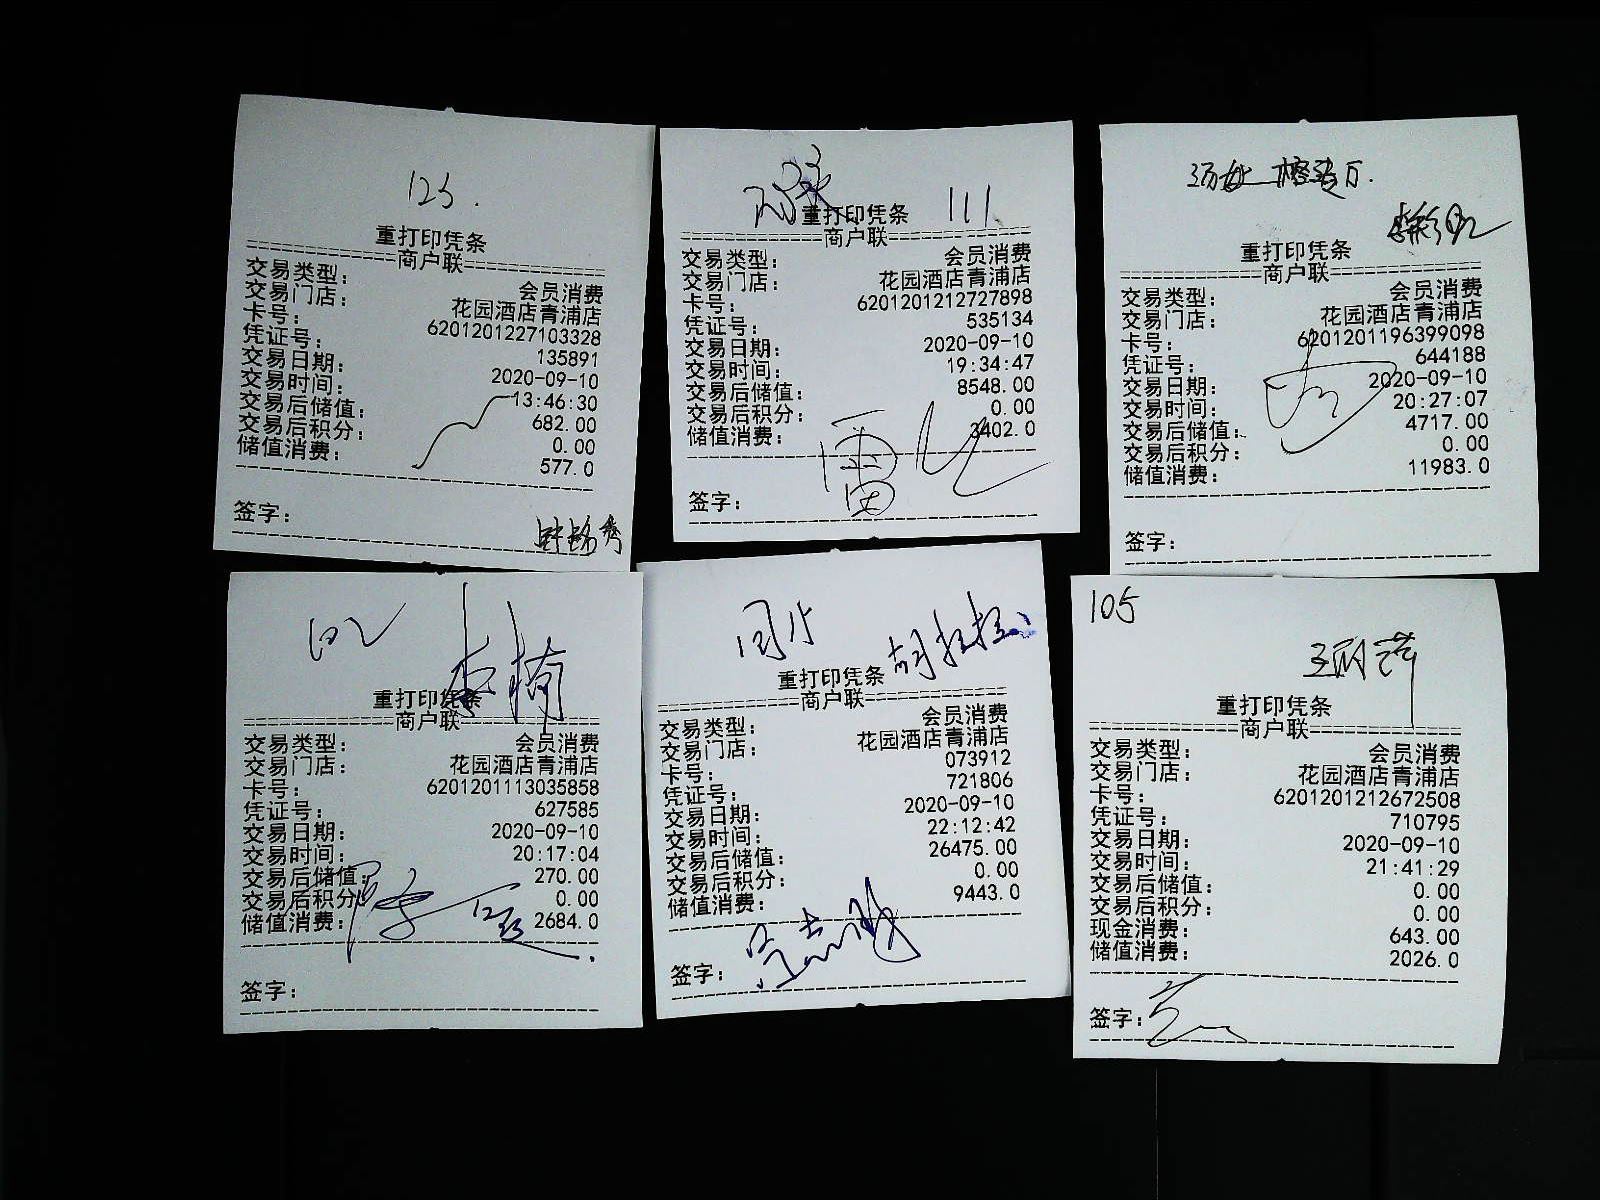 123.
重打印凭条
商户联
交易类型: 会员消费
交易门店: 花园酒店青浦店
卡号: 6201201227103328
凭证号: 135891
交易日期: 2020-09-10
交易时间: 13:46:30
交易后储值: 682.00
交易后积分: 0.00
储值消费: 577.0
签字:
111
重打印凭条
商户联
交易类型: 会员消费
交易门店: 花园酒店青浦店
卡号: 6201201212727898
凭证号: 535134
交易日期: 2020-09-10
交易时间: 19:34:47
交易后储值: 8548.00
交易后积分: 0.00
储值消费: 3402.0
签字:
重打印凭条
商户联
交易类型: 会员消费
交易门店: 花园酒店青浦店
卡号: 6201201196399098
凭证号: 644188
交易日期: 2020-09-10
交易时间: 20:27:07
交易后储值: 4717.00
交易后积分: 0.00
储值消费: 11983.0
签字:
102
李楠
重打印凭条
商户联
交易类型: 会员消费
交易门店: 花园酒店青浦店
卡号: 6201201113035858
凭证号: 627585
交易日期: 2020-09-10
交易时间: 20:17:04
交易后储值: 270.00
交易后积分: 0.00
储值消费: 2684.0
签字:
重打印凭条
商户联
交易类型: 会员消费
交易门店: 花园酒店青浦店
卡号: 073912
凭证号: 721806
交易日期: 2020-09-10
交易时间: 22:12:42
交易后储值: 26475.00
交易后积分: 0.00
储值消费: 9443.0
签字:
105
重打印凭条
商户联
交易类型: 会员消费
交易门店: 花园酒店青浦店
卡号: 6201201212672508
凭证号: 710795
交易日期: 2020-09-10
交易时间: 21:41:29
交易后储值: 0.00
交易后积分: 0.00
现金消费: 643.00
储值消费: 2026.0
签字: